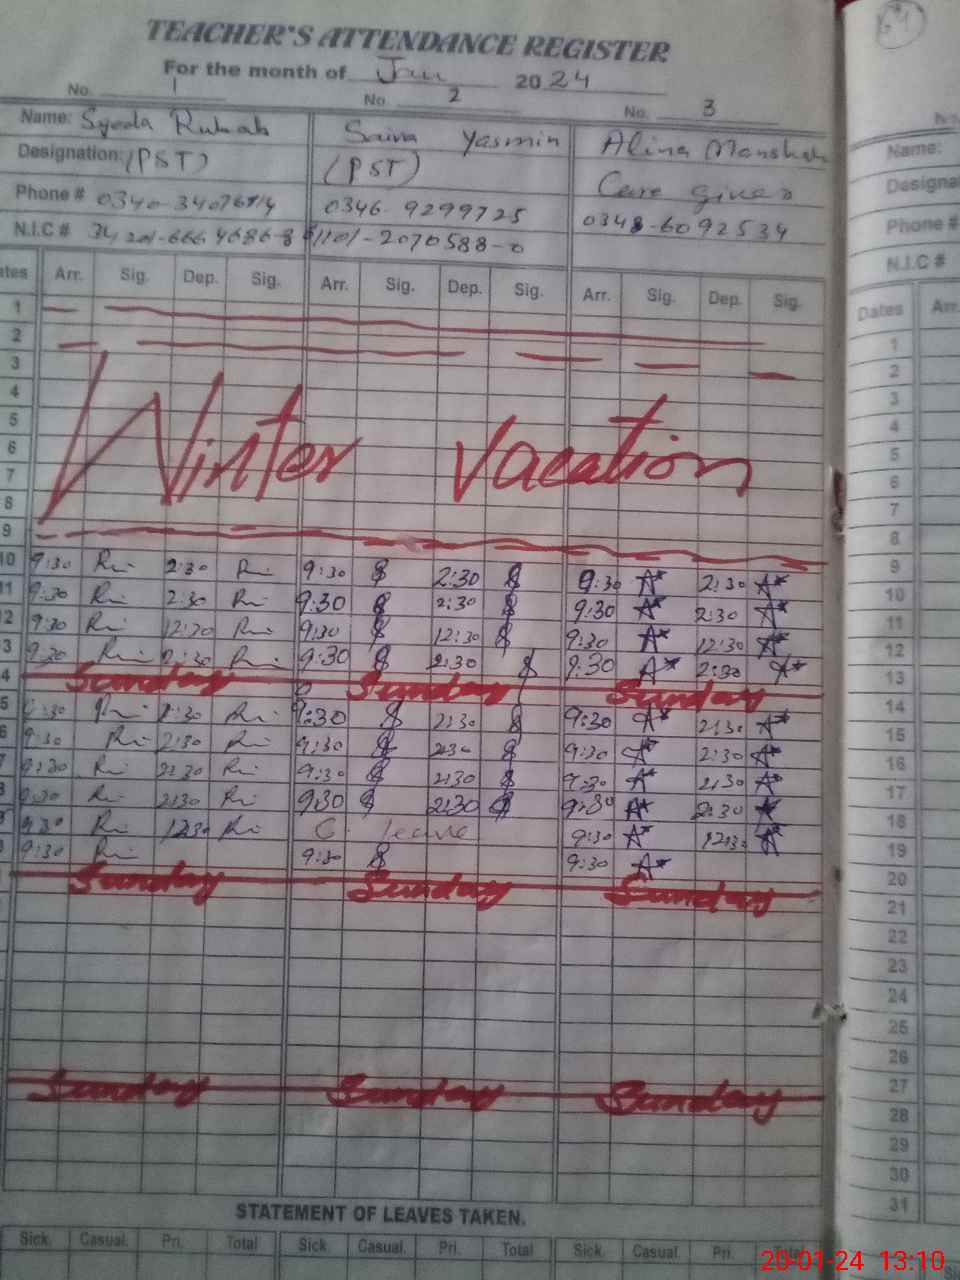 TEACHER'S ATTENDANCE REGISTER
For the month of Jan 2024
No. 1 No. 2 No. 3
Name: Syeda Rubab Saira Yasmin Alina Manshah
Designation: (PST) (PST) Care giver
Phone # 0346-9299725 0348-6092534
N.I.C #
Arr. Sig. Dep. Sig. Arr. Sig. Dep. Sig. Arr. Sig. Dep. Sig.
1
2
3
4
5
6
7
8
9
Winter Vacation
10 9:30 2:30 9:30 2:30 9:30 A* 2:30 A*
11 9:30 2:30 9:30 2:30 9:30 A* 2:30 A*
12 9:30 12:30 9:30 12:30 9:30 A* 12:30 A*
3 9:30 2:30 9:30 2:30 9:30 A* 2:30 A*
4 Sunday Sunday Sunday
5 9:30 2:30 9:30 2:30 9:30 A* 2:30 A*
6 9:30 2:30 9:30 2:30 9:30 A* 2:30 A*
9:30 2:30 9:30 2:30 9:30 A* 2:30 A*
9:30 2:30 9:30 2:30 9:30 A* 2:30
9:30 12:30 C. leave 9:30 A* 12:30 A*
9:30 9:30 9:30 A*
Sunday Sunday Sunday
Sunday Sunday Sunday
STATEMENT OF LEAVES TAKEN.
Sick. Casual. Pri. Total Sick. Casual. Pri. Total Sick. Casual. Pri. Total
Name:
Phone #
N.I.C #
Dates Arr.
1
2
3
4
5
6
7
8
9
10
11
12
13
14
15
16
17
18
19
20
21
22
23
24
25
26
27
28
29
30
31
20-01-24 13:10